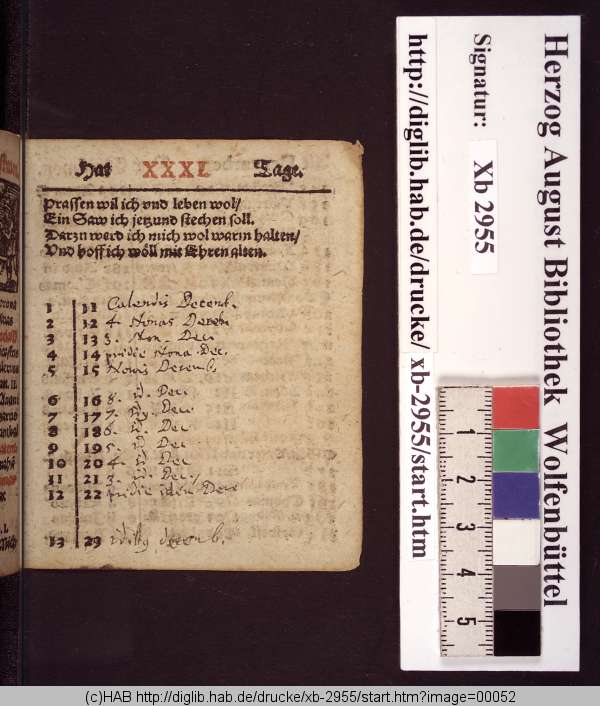 Hat XXXI. Tage.
Prassen wil ich vnd leben wol/
Ein Saw ich jetzund stechen soll.
Darzu werd ich mich wol warm halten/
Vnd hoff ich wöll mit Ehren alten.
1 11 Calendis Decemb.
2 12 4. Nonas Decem
3 13 3. Non. Dec.
4 14 pridie Nona Dec.
5 15 Nonis Decemb.
6 16 8. Dec.
7 17 7. Dec.
8 18 6. Dec
9 19 5. Dec
10 20 4. Dec
11 21 3. Dec.
12 22 pridie Dec
13 23 decemb.
Herzog August Bibliothek Wolfenbüttel
Signatur: Xb 2955
http://diglib.hab.de/drucke/ xb-2955/start.htm
1
2
3
4
5
(c)HAB http://diglib.hab.de/drucke/xb-2955/start.htm?image=00052